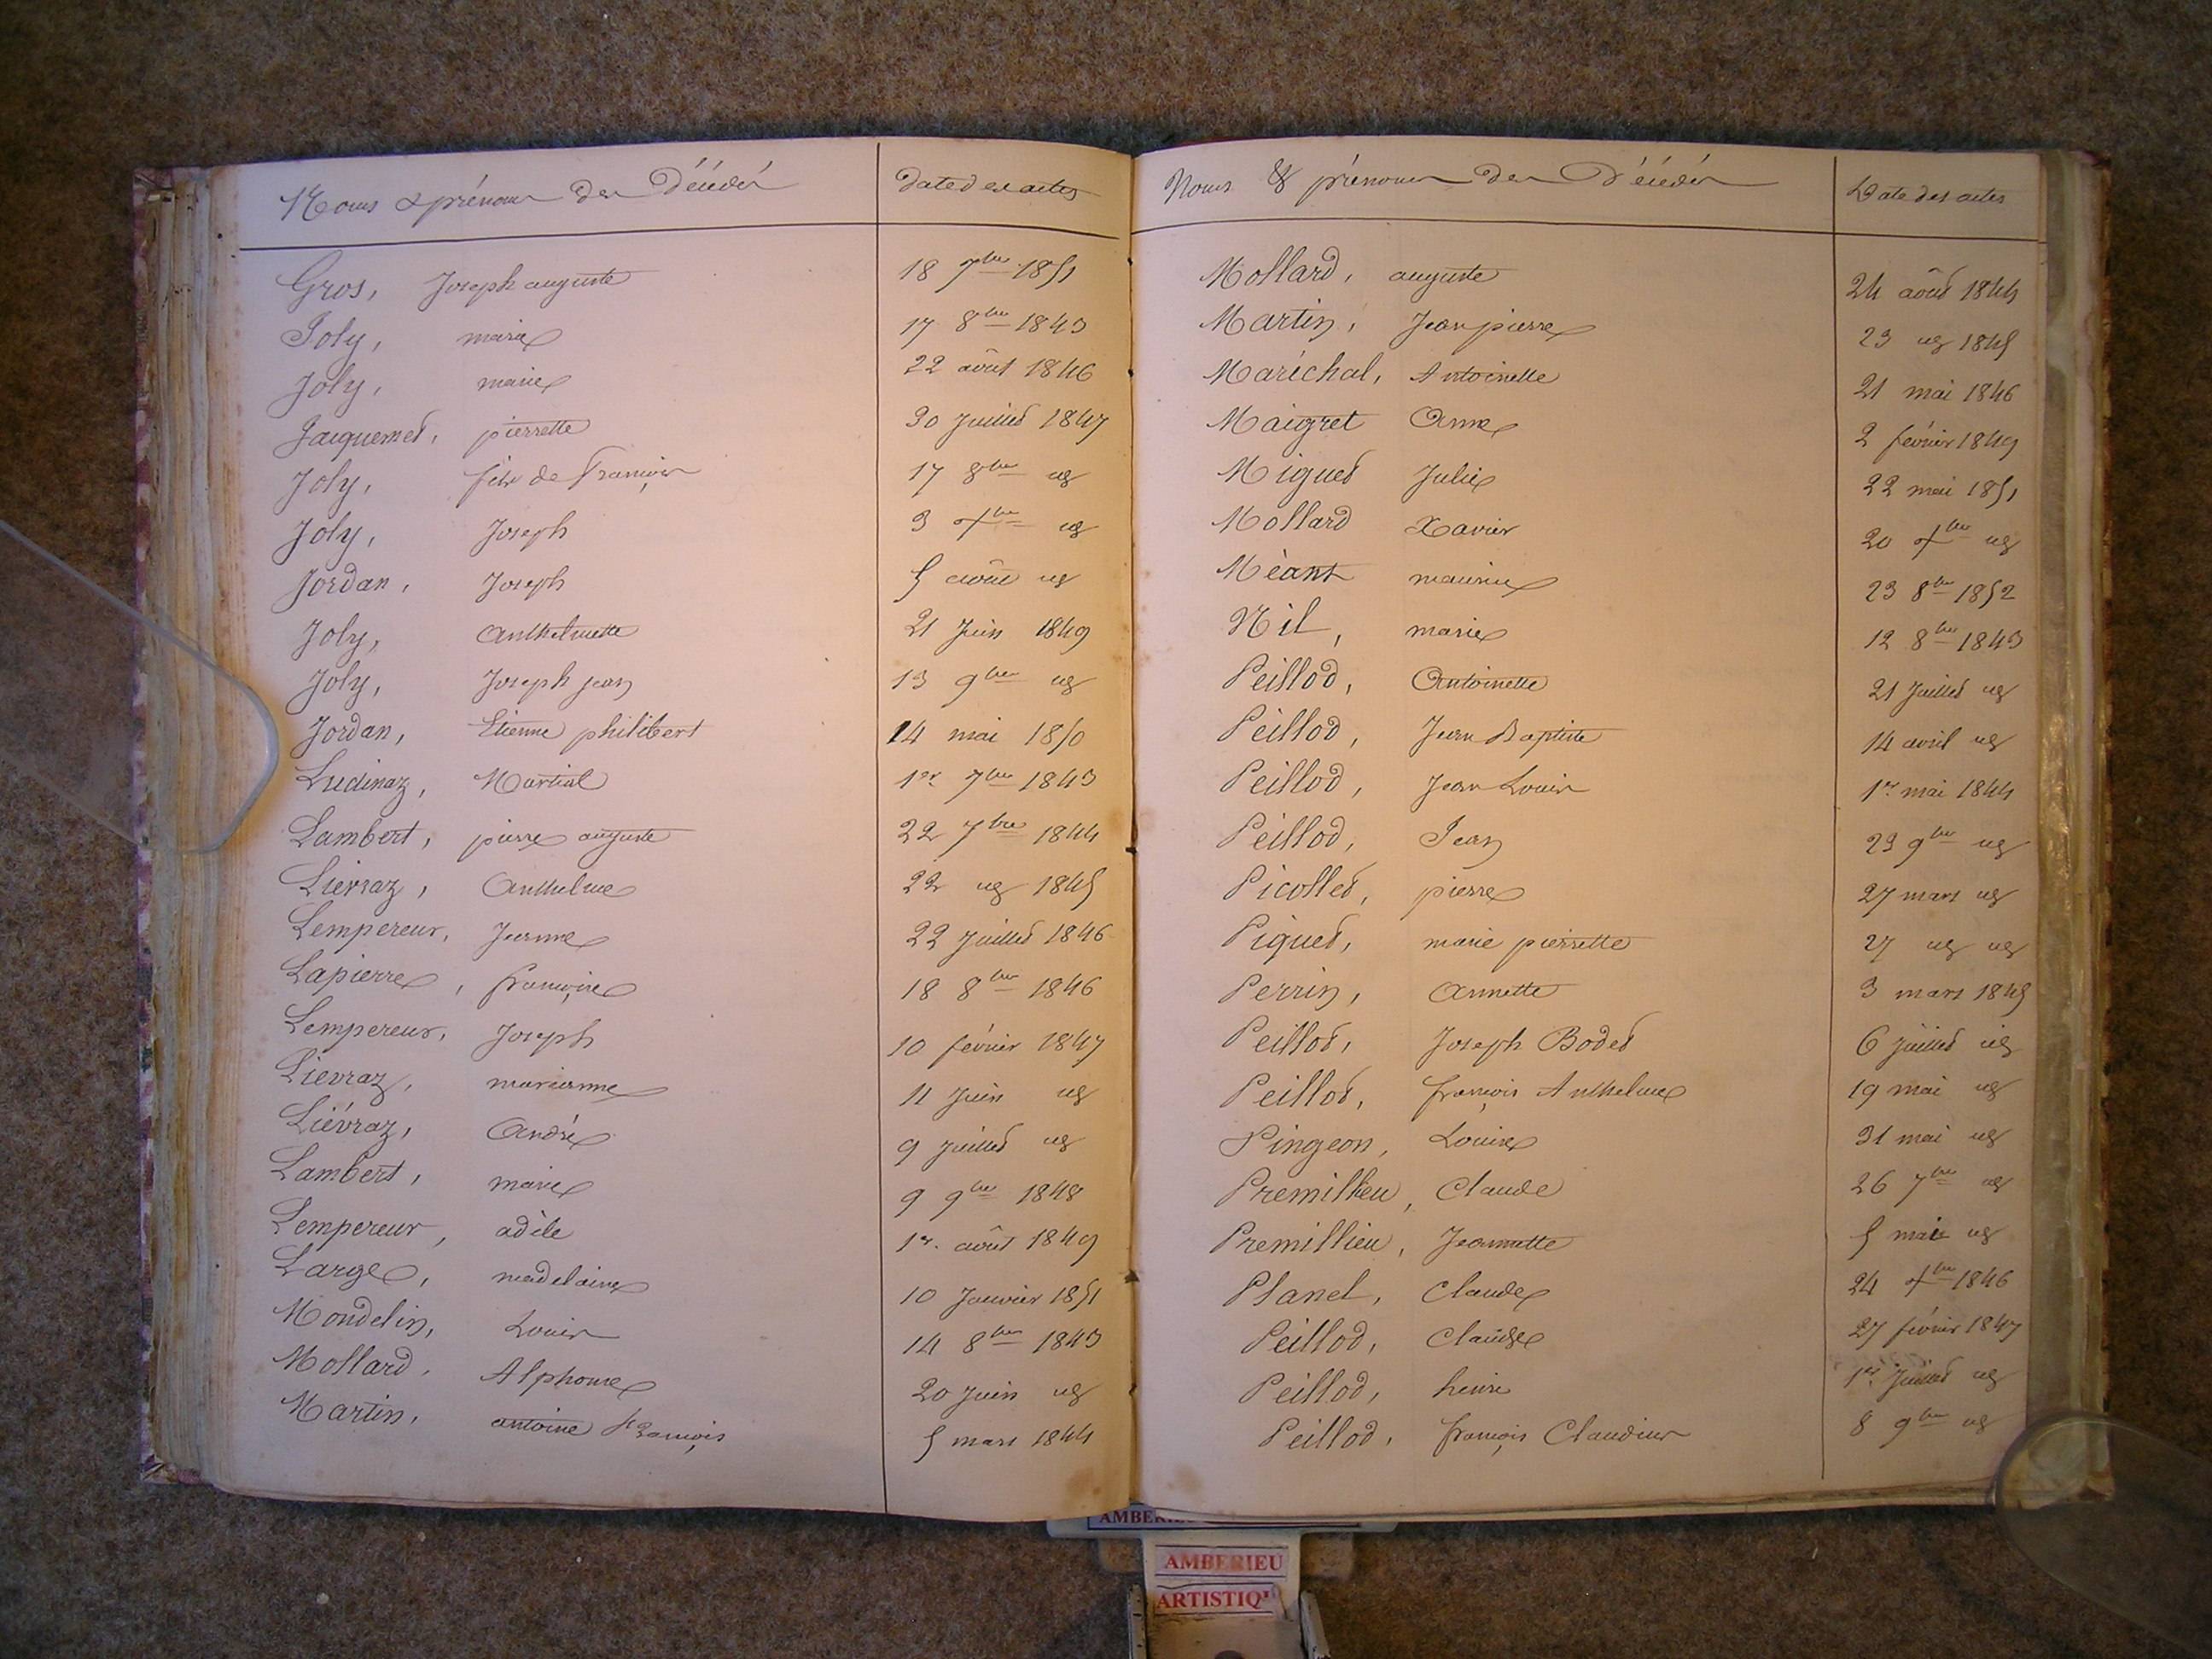 Noms & prénoms des Décédés
Date des actes
Gros, Joseph auguste 18 7bre 1851
Joly, marie 17 8bre 1843
Joly, marie 22 août 1846
Jacquemet, pierrette 30 Juillet 1847
Joly, fils de François 17 8bre id
Joly, Joseph 3 Xbre id
Jordan, Joseph 5 août id
Joly, Anthelmette 21 Juin 1849
Joly, Joseph jean 13 9bre id
Jordan, Etienne philibert 14 mai 1850
Ludinaz, Martial 1er 7bre 1843
Lambert, pierre auguste 22 7bre 1844
Lievraz, Anthelme 22 id 1845
Lempereur, Jeanne 22 Juillet 1846
Lapierre, françoise 18 8bre 1846
Lempereur, Joseph 10 février 1847
Lievraz, marianne 11 Juin id
Liévraz, André 9 Juillet id
Lambert, marie 9 9bre 1848
Lempereur, adèle 1er août 1849
Large, madelaine 10 Janvier 1851
Mondelin, Louis 14 8bre 1843
Mollard, Alphonse 20 Juin id
Martin, antoine François 5 mars 1844
Noms & prénoms des Décédés
Date des actes
Mollard, auguste 24 août 1844
Martin, Jean pierre 23 id 1845
Maréchal, Antoinette 21 mai 1846
Maigret Anne 2 février 1849
Miguet Julie 22 mai 1851
Mollard Xavier 20 Xbre id
Mèant maurice 23 8bre 1852
Nil, marie 12 8bre 1843
Peillod, Antoinette 21 Juillet id
Peillod, Jean Baptiste 14 avril id
Peillod, Jean Louis 1er mai 1844
Peillod, Jean 23 9bre id
Picollet, pierre 27 mars id
Piquet, marie pierrette 27 id id
Perrin, Annette 3 mars 1845
Peillod, Joseph Bodet 6 Juillet id
Peillod, françois Anthelme 19 mai id
Pingeon, Louise 31 mai id
Premillieu, Claude 26 7bre id
Premillieu, Jeannette 5 mai id
Planel, Claude 24 Xbre 1846
Peillod, Claude 27 février 1847
Peillod, henri 1er Juillet id
Peillod, françois Claudius 8 9bre id
AMBERIEU
ARTISTIQU